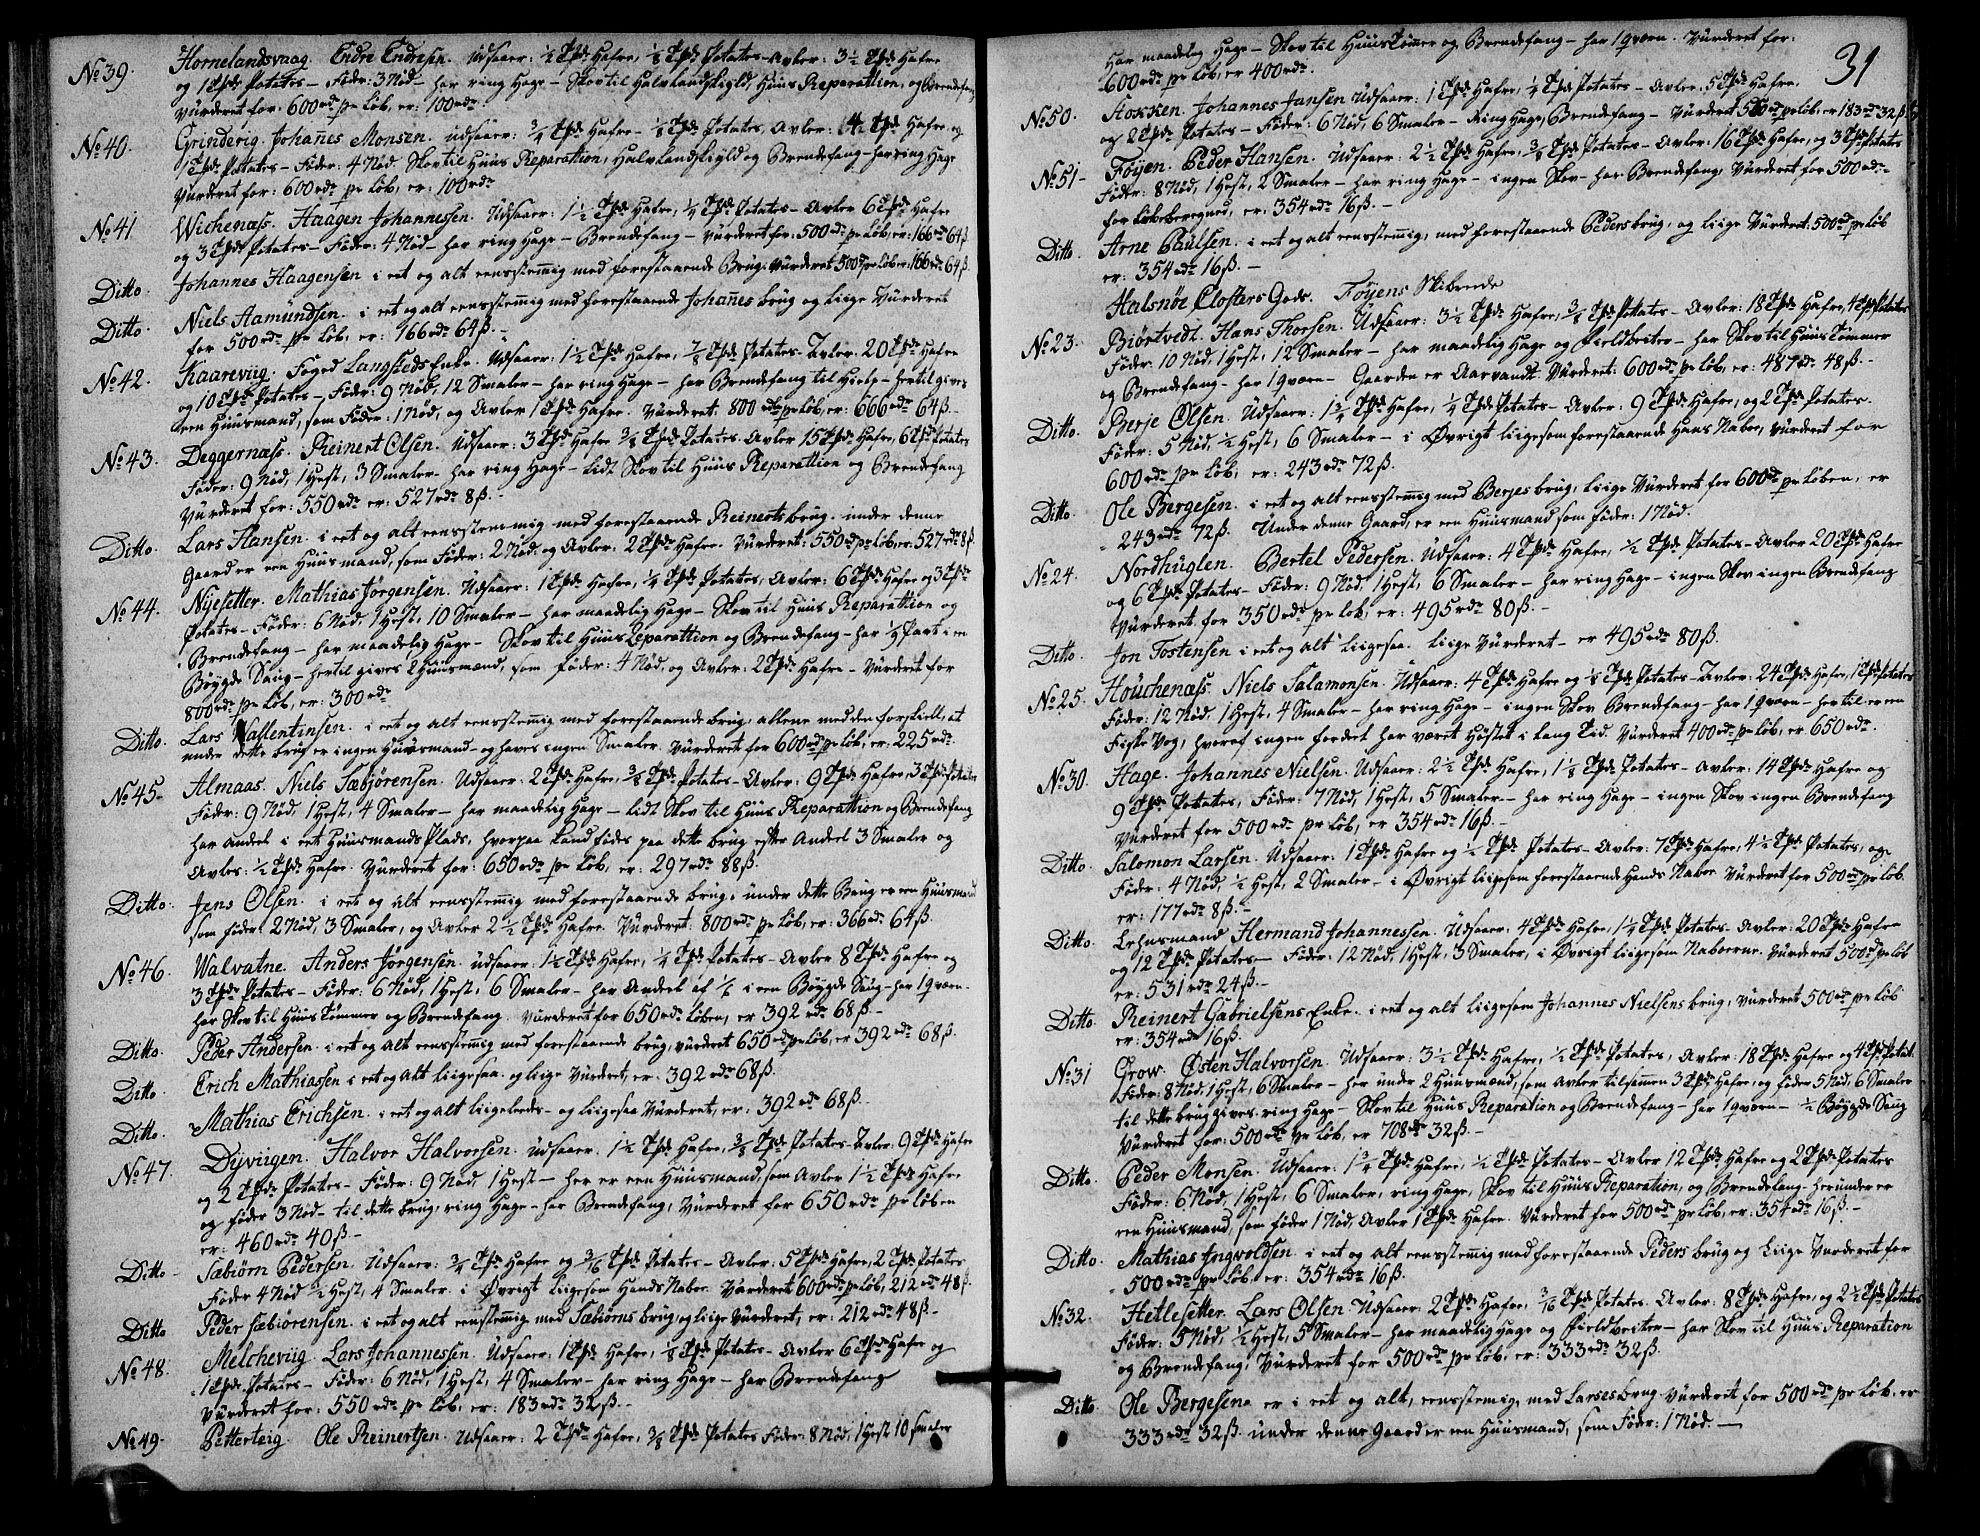 No 39. Hornelandsvaag. Endre Endresen. Udsaaer: ½ Tde Hafre, ⅛ Tde Potates – Avler: 3½ Tde Hafre
og 1 Tde Potates – Føder: 3 Nød – har ring Hage – Skov til Halvlandskyld, Huus Reparattion, og Brendefang
Vurderet for: 600 rdr pr Løb, er: 100 rdr
No 40. Grindevig. Johanes Monsen. Udsaaer: ¾ Tde Hafre – ⅛ Tde Potates, Avler: Tde Hafre og
1 Tde Potates – Føder: 4 Nød. Skov til Huus Reparattion, Halvlandskyld og Brendefang – har ring Hage
Vurderet for: 600 rdr pr Løb, er: 100 rdr
No 41 Wichenass. Haagen Johannessen. Udsaaer: 1½ Tde Hafre, ¼ Tde Potates – Avler 6 Tde Hafre
og 3 Tde Potates – Føder: 4 Nød – har ring Hage – Brendefang – Vurderet for: 500 rdr pr Løb, er: 166 rdr 64 ß.
Ditto. Johannes Haagensen i eet og alt eensstemig med forestaaende Brug. Vurderet 500 rdr pr Løb er: 166 rdr 64 ß.
Ditto. Niels Aamundsen. i eet og alt eensstemig med forestaaende Johanes brug og liige Vurderet
for 500 rdr pr Løb, er: 166 rdr 64 ß. –
No 42. Kaarevug. Foged Langsteds Enke. Udsaaer: 1½ Tde Hafre, ⅞ Tde Potates – Avler: 20 Tde Hafre
og 10 Tde Potates – Føder: 9 Nød, 12 Smaler – har ring Hage – har Brendefang til Hielp – hertil gives
een Huusmand, som Føder: 1 Nød, og Avler 1 Tde Hafre. Vurderet 800 rdr pr Løb, er: 666 rdr 64 ß. –
No 43. Deggernæss. Reinert Olsen. Udsaaer: 3 Tde Hafre ⅜ Tde Potates. Avler 15 Tde Hafre, 6 Tde Potates
Føder: 9 Nød, 1 Hest, 3 Smaler – har ring Hage – Lidt Skov til Huus Reparattion og Brendefang
Vurderet for: 550 rdr er: 527 rdr 8 ß. –
Ditto. Lars Hansen. i eet og alt eensstemmig med forestaaende Reinerts brug. under denne
Gaard er een Huusmand, som Føder: 2 Nød og Avler: 2 Tde Hafre. Vurderet: 550 rdr pr Løb, er: 527 rdr 8 ß.
No 44. Nyesetter. Mathias Jørgensen. Udsaaer: 1 Tde Hafre, ¼ Tde Potates, Avler: 6 Tde Hafre og 3 Tde
Potates – Føder: 6 Nød, 1 Hest, 10 Smaler – har maadelig Hage – Skov til Huus Reparattion og
Brendefang – har maadelig Hage – Skov til Huus Reparattion og Brendefang – har Part i en
Bøygde Saug – hertil gives 2 Huusmænd, som føder: 4 Nød, og Avler: 2 Tde Hafre – Vurderet for
800 rdr pr Løb, er: 300 rdr
Ditto. Lars Wallentinsen. i eet og alt eensstemig med forestaaende brug, allene med den forskiell, at
under dette brug er ingen Huusmand – og haves ingen Smaler. Vurderet for 600 rdr pr Løb, er: 225 rdr
No 45 – Almaas. Niels Sæbjørensen. Udsaaer: 2 Tde Hafre, ⅜ Tde Potates – Avler: 9 Tde Hafre, 3 Tde Potates
Føder: 9 Nød, 1 Hest, 4 Smaler – har maadelig Hage – Lidt Skov til Huus Reparattion og Brendefang
har andeel i eet Huusmands Plads, hvorpaa kand fødes paa dette brug efter Andeel 3 Smaler og
Avles: ½ Tde Hafre. Vurderet for: 650 rdr pr Løb, er: 297 rdr 88 ß.
Ditto. Jens Olsen. i eet og alt eensstemig med forestaaende brug, under dette Brug er een Huusmand
som føder. 2 Nød, 3 Smaler, og Avler 2½ Tde Hafre. Vurderet: 800 rdr pr Løb, er: 366 rdr 64 ß. –
No 46. Walvatne. Anders Jørgensen. Udsaaer: 1½ Tde Hafre, ¼ Tde Potates – Avler 8 Tde Hafre og
3 Tde Potates – Føder: 6 Nød, 1 Hest, 6 Smaler – har Andeel af i een Bøygde Saug – har 1 qværn.
har Skov til Huus Tømmer og Brendefang. Vurderet for 650 rdr Løben, er 392 rdr 68 ß –
Ditto. Peder Andersen. i eet og alt eensstemig med forestaaende brug, vurderet 650 rdr pr Løb, er 392 rdr 68 ß.
Ditto. Erich Mathiassen i eet og alt liigesaa. og liige Vurderet, er: 392 rdr 68 ß.
Ditto. Mathias Erichsen. i eet og alt liigeledes – og liigesaa Vurderet, er: 392 rdr 68 ß. –
No 47. Dyvugen. Halvor Halvorsen. Udsaaer: 1½ Tde Hafre, ⅜ Tde Potates – Avler: 9 Tde Hafre
og 2 Tde Potates – Føder: 9 Nød, 1 Hest – her er een Huusmand, som Avler 1½ Tde Hafre
og føder 3 Nød – til dette brug, ring Hage – har Brendefang, Vurderet for 650 rdr pr Løben
er: 460 rdr 40 ß. –
Ditto – Sæbiørn Pedersen. Udsaaer: ¾ Tde Hafre og 3/16 Tde Potates – Avler: 5 Tde Hafre, 2 Tde Potates
Føder 4 Nød ½ Hest, 4 Smaler. i Øvrigt liigesom Hands Nabo. Vurderet 600 rdr pr Løb, 212 rdr 48 ß.
Ditto Peder Sæbiørensen. i eet og alt eensstemig med Sæbiørns brug, og liige Vurderet, er: 212 rdr 48 ß –
No 48. Melchevug. Lars Johannessen. Udsaaer: 1 Tde Hafre, ⅛ Tde Potates – Avler 6 Tde Hafre og
1 Tde Potates – Føder: 6 Nød, 1 Hest, 4 Smaler – har ring Hage – har Brendefang
Vurderet for: 550 rdr pr Løb, er: 183 rdr 32 ß. –
No 49. Petterteig. Ole Reinertsen. Udsaaer: 2 Tde Hafre, ⅜ Tde Potates Føder: 8 Nød, 1 Hest 10 Smaler
31
har maadelig Hage – Skov til Huus Tømer og Brendefang – har 1 qværn. Vurderet for:
600 rdr pr Løb, er 400 rdr.
No 50. Aokken. Johannes Jansen Udsaaer: 1 Tde Hafre, ¼ Tde Potates – Avler: 5 Tde Hafre,
og 2 Tde Potates – Føder: 6 Nød, 6 Smaler – Ring Hage, Brendefang – Vurderet 550 rdr pr Løb, er 183 rdr 32 ß.
No 51 – Føyen. Peder Hansen. Udsaaer: 2½ Tde Hafre, ⅜ Tde Potates – Avler: 16 Tde Hafre, og 3 Tde Potates
Føder: 8 Nød, 1 Hest, 2 Smaler – har ring Hage – ingen Skov – har Brendefang, Vurderet for 500 rdr –
for Løb beregned, er: 354 rdr 16 ß. –
Ditto. Arne Paulsen. i eet og alt eensstemig, med forestaaende Peders brug, og liige Vurderet: 500 rdr pr Løb
er: 354 rdr 16 ß. –
Halsnøe Closters Gods. Føyens Skibrede
No 23. Biørtvedt. Hans Thorsen. Udsaaer: 3½ Tde Hafre, ⅜ Tde Potates – Avler: 18 Tde Hafre, 4 Tde Potates
Føder 10 Nød, 1 Hest, 12 Smaler – har maadelig Hage og Fieldbeiter – har Skov til Huus Tømmer
og Brendefang – har 1 qværn – Gaarden er Aarvandt. Vurderet: 600 rdr pr Løb, er: 487 rdr 48 ß. –
Ditto. Berje Olsen. Udsaaer: 1¾ Tde Hafre, ¼ Tde Potates – Avler: 9 Tde Hafre, og 2 Tde Potates.
Føder: 5 Nød, ½ Hest, 6 Smaler – i Øvrigt liigesom forestaaende Hans Naboe, Vurderet for
600 rdr pr Løb, er: 243 rdr 72 ß.
Ditto. Ole Bergesen. i eet og alt eensstemig med Berjes brug, liige Vurderet for 600 rdr pr Løben, er
243 rdr 72 ß. Under denne Gaard, er een Huusmand som føder: 1 Nød.
No 24. Nordhuglen. Bertel Pedersen. Udsaaer: 4 Tde Hafre, ½ Tde Potates – Avler 20 Tde Hafre
og 6 Tde Potates – Føder: 9 Nød, 1 Hest, 6 Smaler – har ring Hage – ingen Skov ingen Brendefang
Vurderet for 350 rdr pr Løb, er: 495 rdr 80 ß. –
Ditto. Jon Tostensen i eet og alt liigesaa. liige Vurderet – er 495 rdr 80 ß.
No 25. Houchenæss. Niels Salamonsen. Udsaaer: 4 Tde Hafre og ⅛ Tde Potates – Avler: 24 Tde Hafre, 1 Tde Potates
Føder: 12 Nød, 1 Hest, 4 Smaler – har ring Hage – ingen Skov Brendefang – har 1 qværn – her til er een
Fiske Vog, hvoraf ingen fordeel har været Høstet i lang Tid. Vurderet 400 rdr pr Løb, er: 650 rdr.
No 30. Hage. Johannes Nielsen. Udsaaer: 2½ Tde Hafre, 1⅛ Tde Potates – Avler: 14 Tde Hafre og
9 Tde Potates, Føder: 7 Nød, 1 Hest, 5 Smaler – har ring Hage – ingen Skov ingen Brendefang
Vurderet for 500 rdr pr Løb, er 354 rdr 16 ß. –
Ditto. Salomon Larsen. Udsaaer: 1 Tde Hafre og ½ Tde Potates – Avler: 7 Tde Hafre, 4½ Tde Potates, og
Føder: 4 Nød, ½ Hest, 2 Smaler – i Øvrigt liigesom forestaaende Hands Naboe Vurderet for 500 rdr pr Løb.
er: 177 rdr 8 ß. –
Ditto. Lehnsmand Hermand Johannessen. Udsaaer: 4 Tde Hafre, 1¼ Tde Potates. Avler: 20 Tde Hafre
og 12 Tde Potates – Føder: 12 Nød, 1 Hest, 3 Smaler, i Øvrigt liigesom Naboerne. Vurderet 500 rdr pr Løb
er: 531 rdr 24 ß. –
Ditto. Reinert Gabrielsens Enke. i eet og alt liigesom Johannes Nielsens brug, Vurderet 500 rdr pr Løb
er: 354 rdr 16 ß. –
No 31 Grow. Østen Halvorsen. Udsaaer: 3½ Tde Hafre, ½ Tde Potates, Avler: 18 Tde Hafre og 4 Tde Potat.
Føder: 8 Nød, 1 Hest, 6 Smaler – her under 2 Huusmænd, som avler tilsamen 3 Tde Hafre, og føder 5 Nød, 6 Smaler
til dette brug gives ring Hage – Skov til Huus Reparation og Brendefang – har 1 qværn – ½ Bøygde Saug
Vurderet for: 500 rdr pr Løb, er 708 rdr 32 ß. –
Ditto. Peder Monsen. Udsaaer: 1¾ Tde Hafre, ¼ Tde Potates – Avler 12 Tde Hafre og 2 Tde Potates
Føder: 6 Nød, 1 Hest, 6 Smaler, ring Hage, Skov til Huus Reparation, og Brendefang – herunder er
een Huusmand, som føder 1 Nød, Avler 1 Tde Hafre. Vurderet for 500 rdr pr Løb, er: 354 rdr 16 ß. –
Ditto. Mathias Ingvoldsen. i eet og alt eensstemig med forestaaende Peders brug og liige Vurderet for
500 rdr pr Løb, er: 354 rdr 16 ß.
No 32. Hetlesetter. Lars Olsen Udsaaer: 2 Tde Hafre, 3/16 Tde Potates. Avler: 8 Tde Hafre, og 2½ Tde Potates
Føder: 5 Nød, ½ Hest, 5 Smaler – har maadelig Hage og Fieldbeiter – har Skov til Huus Reparation
og Brendefang, Vurderet for 500 rdr pr Løb, er: 333 rdr 32 ß.
Ditto. Ole Bergesen er i eet og alt, eensstemig, med Larses brug. Vurderet for 500 rdr pr Løb, er
333 rdr 32 ß. under denne Gaard er een Huusmand, som Føder: 1 Nød. –